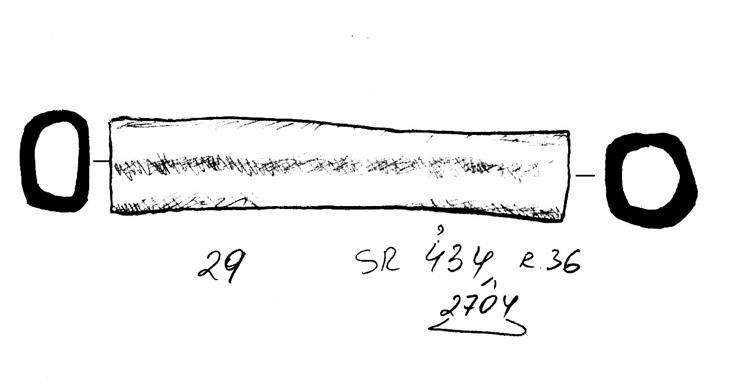 29
SR 434 R.36
2704